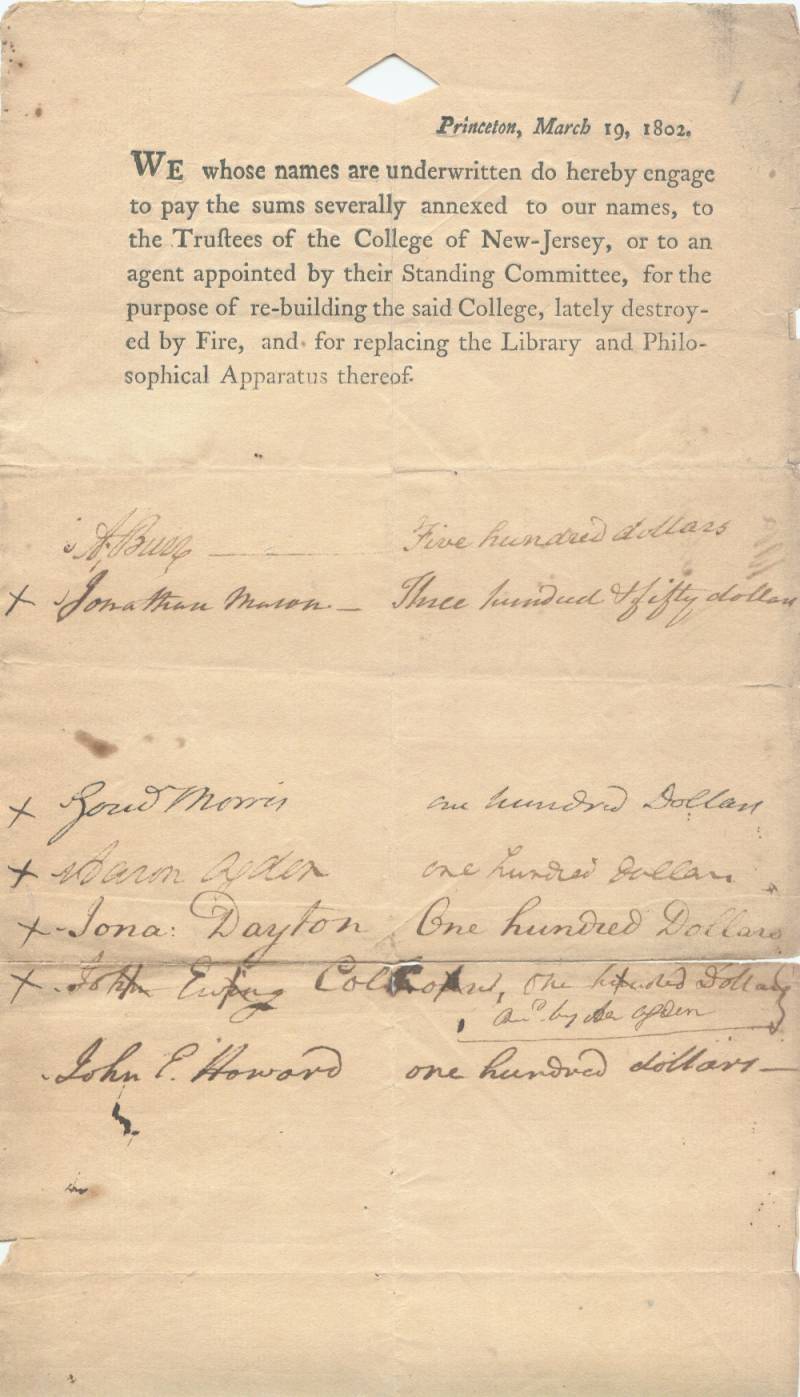 Princeton, March 19, 1802.
WE whose names are underwritten do hereby engage
to pay the sums severally annexed to our names, to
the Truſtees of the College of New-Jersey, or to an
agent appointed by their Standing Committee, for the
purpose of re-building the said College, lately destroy-
ed by Fire, and for replacing the Library and Philo-
sophical Apparatus thereof.
A. Burr — Five hundred dollars
x Jonathan Mason — Three hundred & fifty dollars
x Gouv Morris one hundred Dollars
x Aaron Ogden one hundred dollars
x Jona: Dayton One hundred Dollars
x John Ewing Colhoun, One hundred Dollars
by Aa Ogden
John E. Howard one hundred dollars —